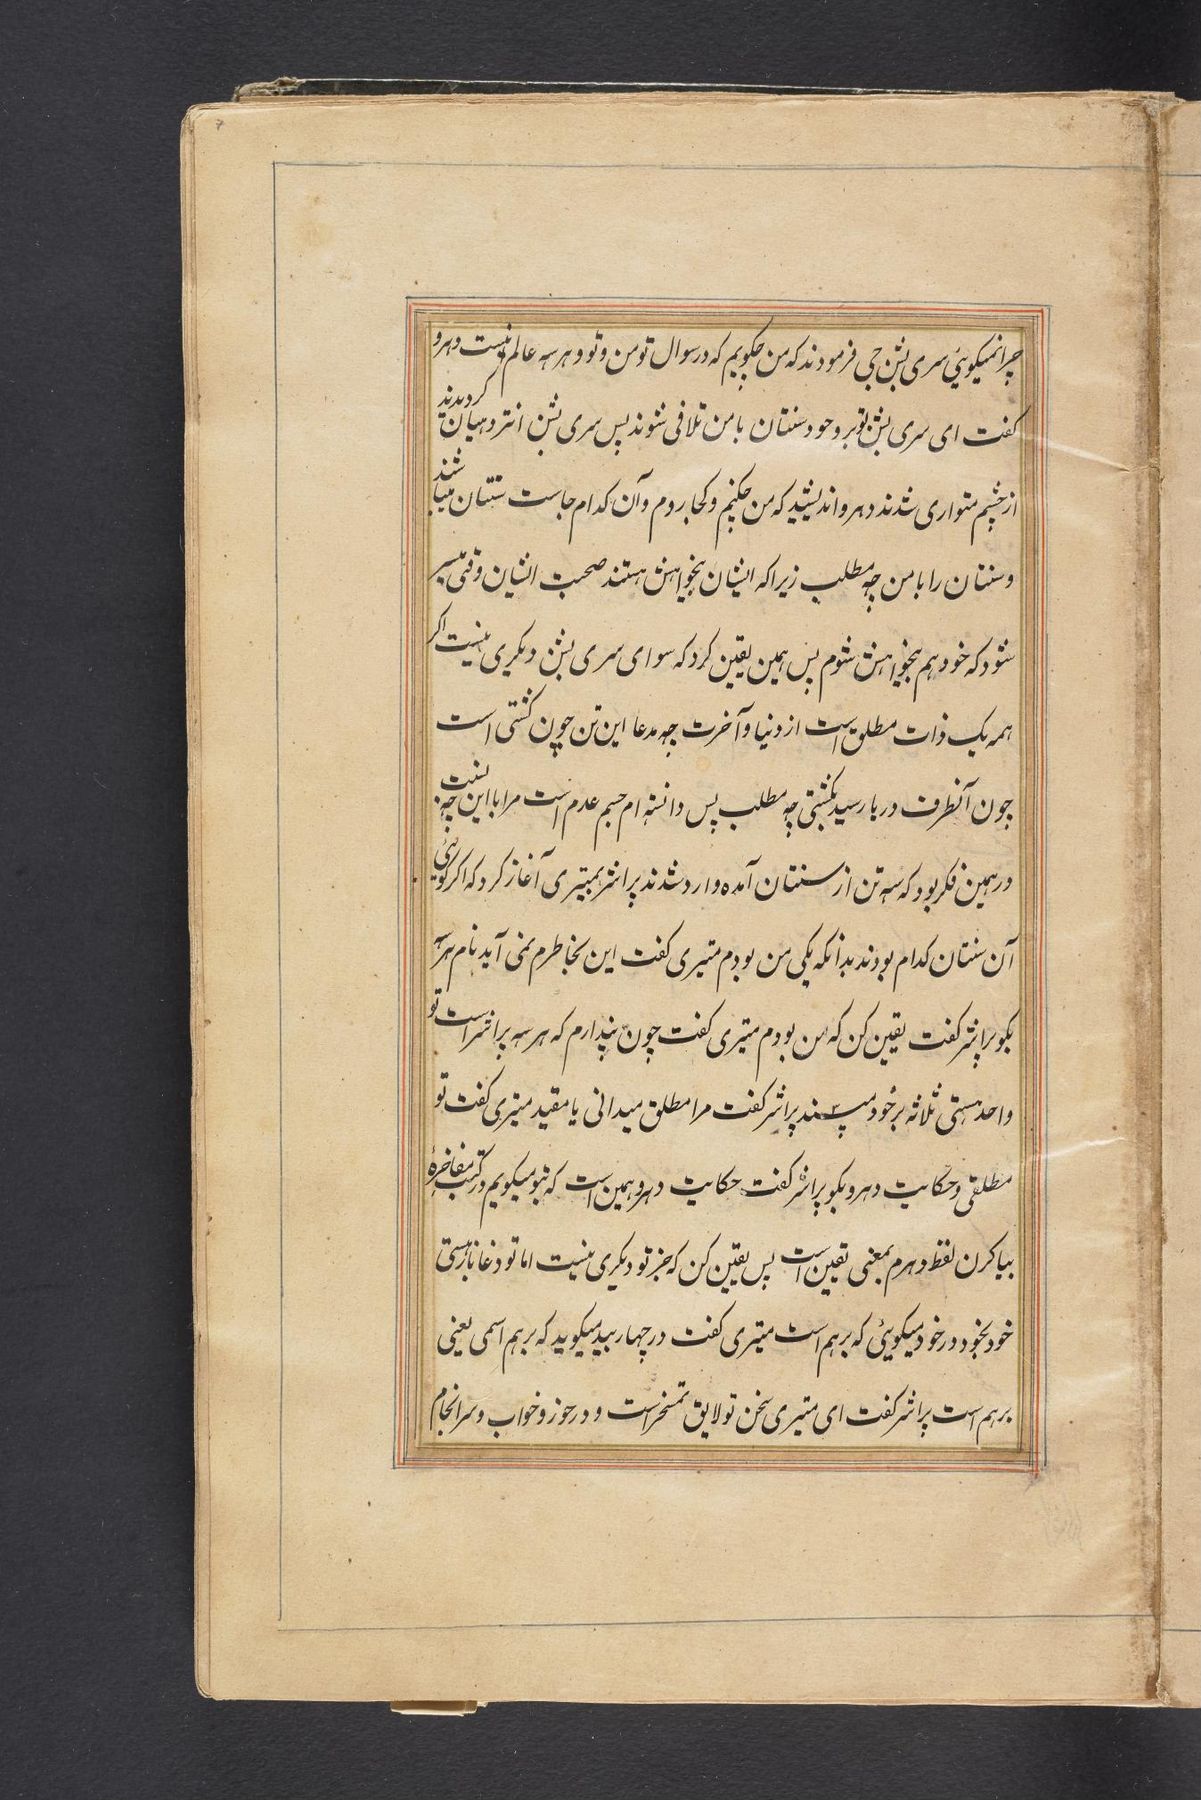 چرا نمیکوئی سری بشن جی فرمودند که من چکویم که در سوال تو من و تو و هر سه عالم نیست دهرو
کفت ای سری بشن تو برو خود سنتان با من تلافی شوند پس سری بشن انتردهیان کردیدند
از چشم متواری شدند دهرو اندیشید که من چکنم و کجا روم و آن کدام جاست سنتان میباشند
و سنتان را با من چه مطلب زیرا که ایشان بیخواهش هستند صحبت ایشان وقتی میسر
شود که خود هم بیخواهش شوم پس همین یقین کرد که سوای سری بشن دیکری نیست اکر
همه یک ذات مطلق است از دنیا و آخرت چه مدعا این تن چون کشتی است
چون آنطرف دریا رسید بکشتی چه مطلب پس دانسته ام جسم عدم است مرا با این چه نسبت
در همین فکر بود که سه تن از سنتان آمده وارد شدند پراشر بمیتری آغاز کرد که اکر کوئی
آن سنتان کدام بودند بدانکه یکی من بودم میتری کفت این بخاطرم نمی آید نام هر سه
بکو پراشر کفت یقین کن که من بودم میتری کفت چون پندارم که هر سه پراشر است تو
واحد هستی ثلاثه بر خود مپسند پراشر کفت مرا مطلق میدانی یا مقید میتری کفت تو
مطلقی و حکایت دهرو بکو پراشر کفت حکایت دهرو همین است که بتو میکویم در کتب مفاخره
بیاکرن لفظ دهرم بمعنی یقین است پس یقین کن که جز تو دیکری نیست اما تو دغا باز هستی
خود بخود در خود میکوئی که برهم است میتری کفت در چهار بید میکوید که برهم اسمی یعنی
برهم است پراشر کفت ای میتری سخن تو لایق تمسخر است و در خور و خواب و سرانجام